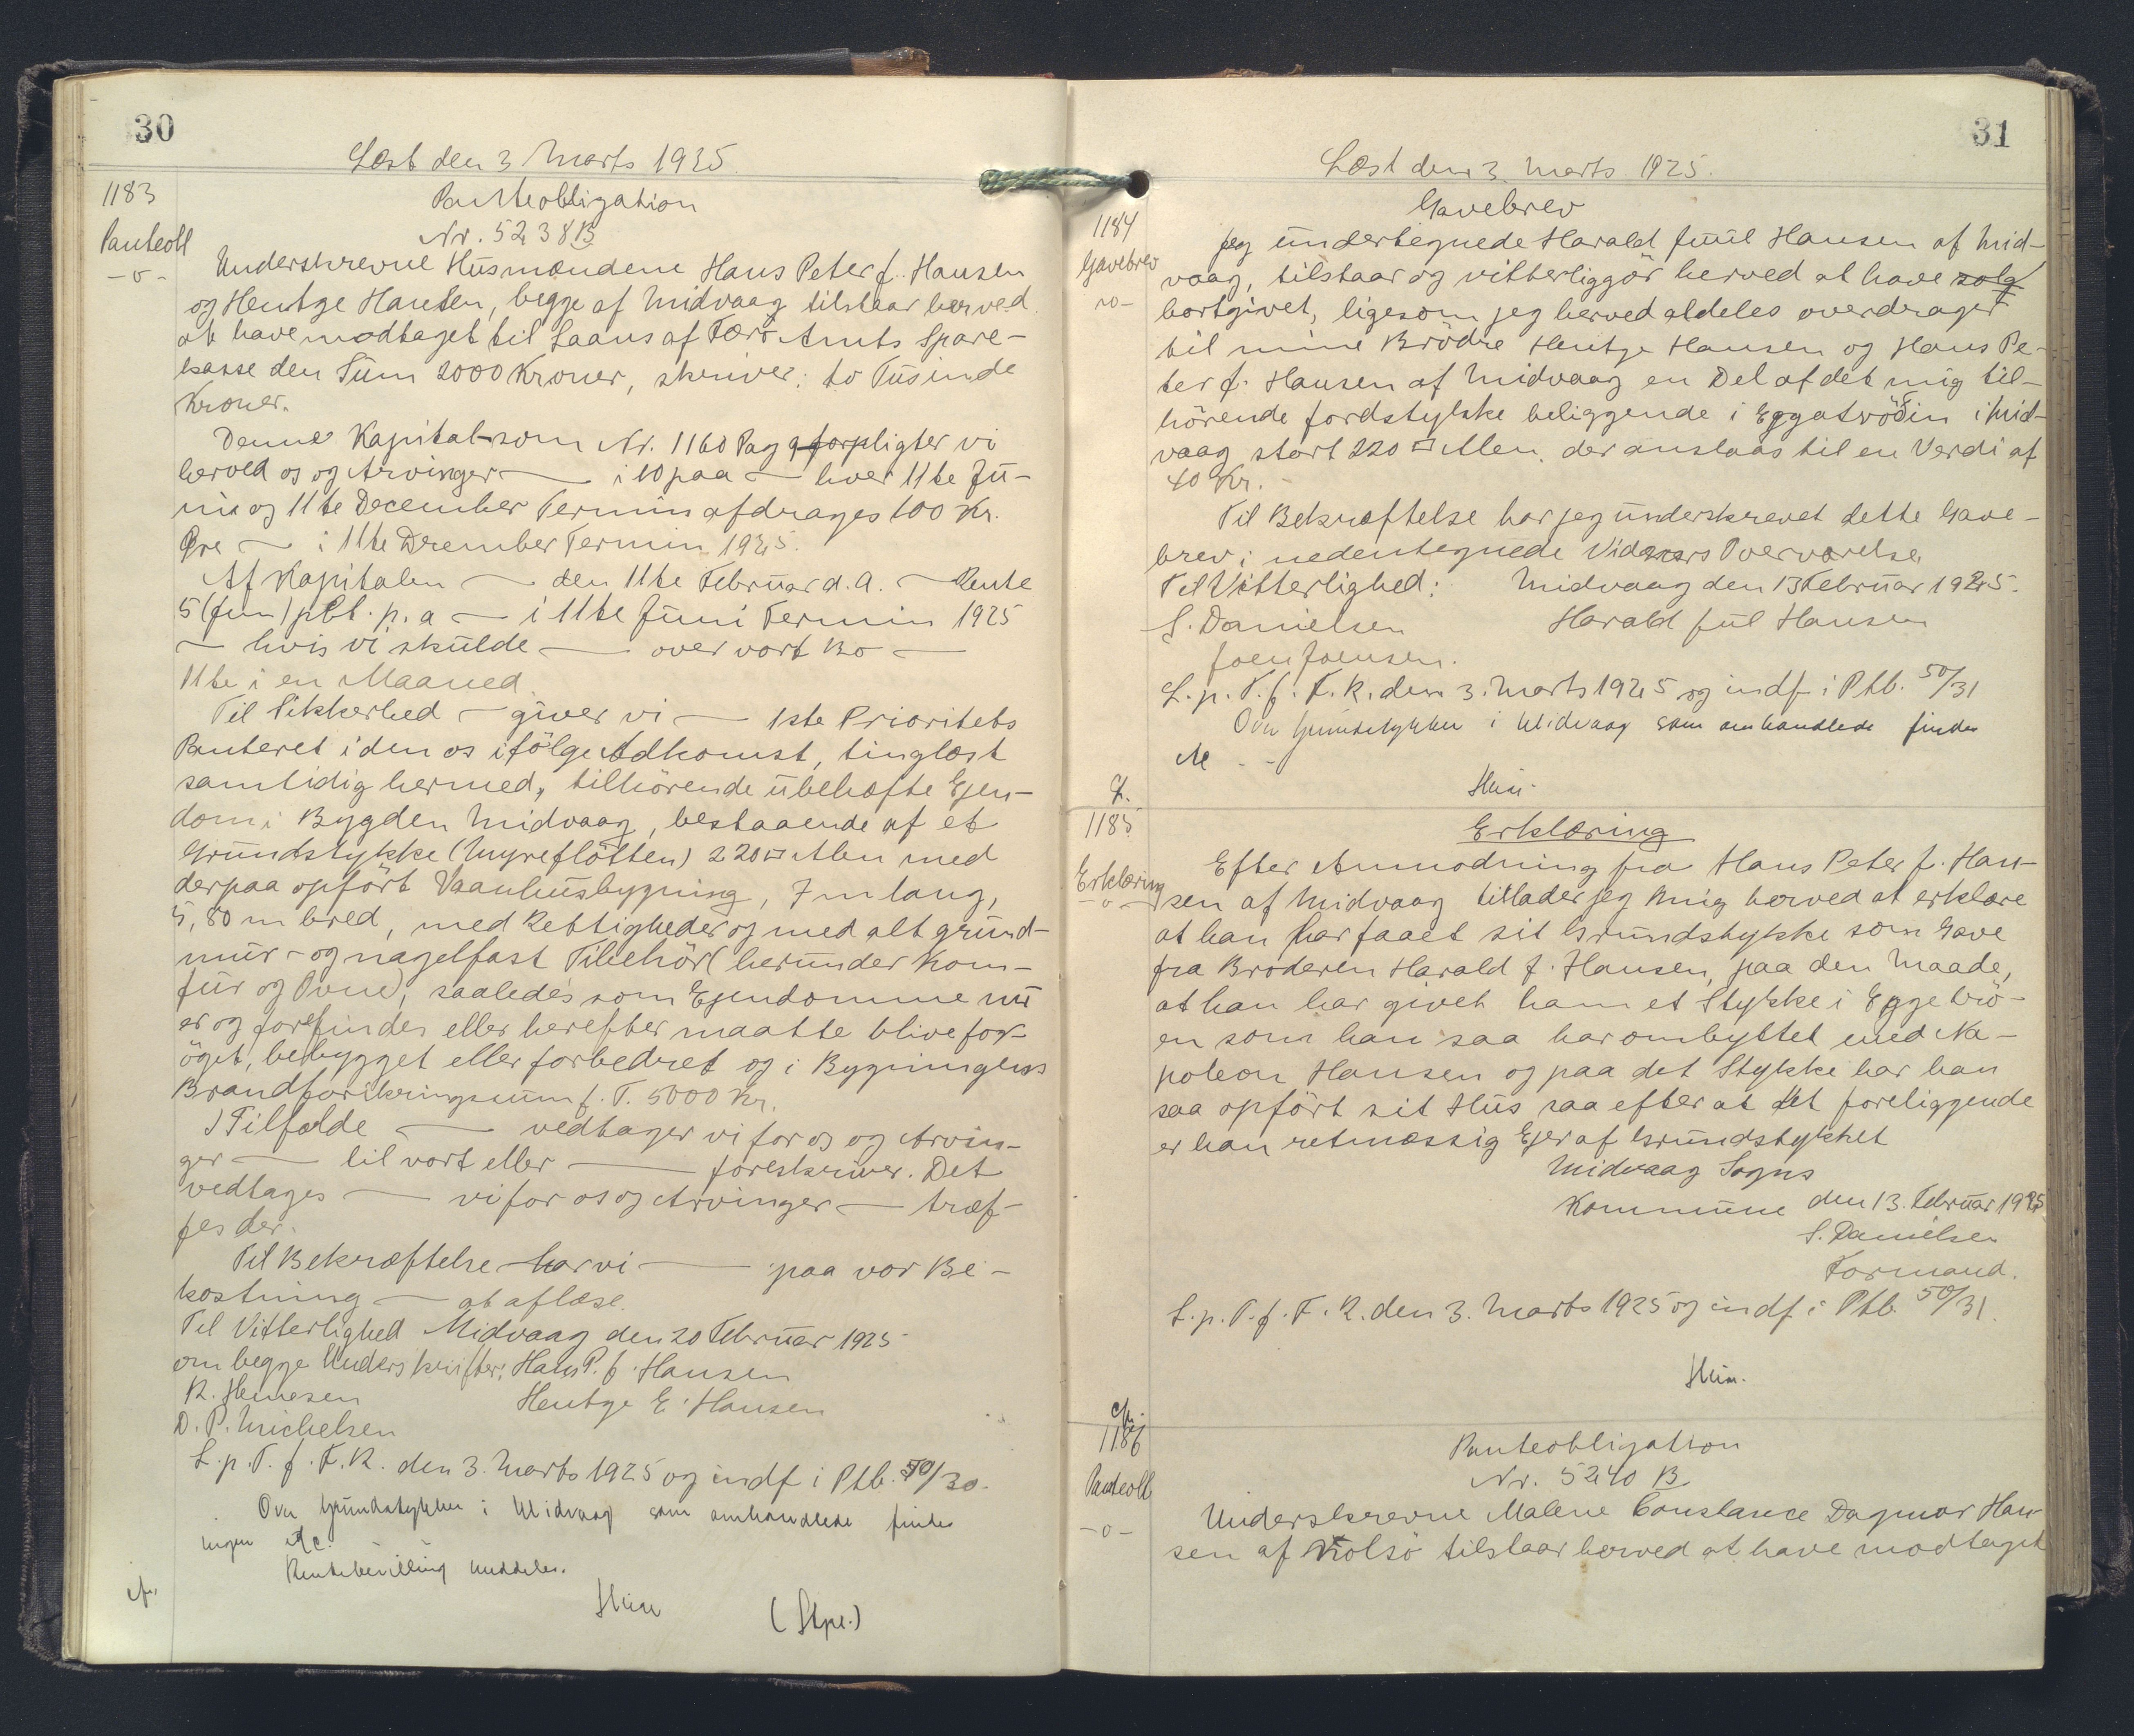 30
Læst den 3 Marts 1925.
1183
Panteobl
-o-
Panteobligation
Nr. 5238 B
Underskrevne Husmændene Hans Peter J. Hansen
og Hentze Hansen, begge af Midvaag tilstaar herved
at have modtaget til Laans af Færø Amts Spare-
kasse den Sum 2000 Kroner, skriver: to Tusinde
Kroner.
Denne Kapital som Nr. 1160 Pag 9 forpligter vi
herved os og Arvinger — i 10 paa — hver 11te Ju-
ni og 11te December Termin afdrages 100 Kr.
Øre — i 11te Dcember Termin 1925.
Af Kapitalen — den 11te Februar d. A. — Rente
5 (fem) pCt. p. a — i 11te Juni Termin 1925
— hvis vi skulde — over vort Bo —
11te i en Maaned.
Til Sikkerhed — giver vi — 1ste Prioritets
Panteret i den os ifölge Adkomst, tinglæst
samtidig hermed, tilhörende ubehæfte Ejen-
dom i Bygden Midvaag, bestaaende af et
Grundstykke (Myreflötten) 220 □ Alen med
derpaa opfört Vaanhusbygning, 7 m lang,
5,80 m bred, med Rettigheder og med alt grund-
mur- og nagelfast Tilbehör (herunder Kom-
fur og Ovne), saaledes som Ejendomme nu
er og forefindes eller herefter maatte blive for-
öget, bebygget eller forbedret og i Bygningens
Brandforsikringssum f. T. 5000 Kr.
I Tilfælde — vedtager vi for os og Arvin-
ger — til vort eller — foreskriver. Det
vedtages — vi for os og Arvinger — træf-
fes der.
Til Bekræftelse har vi — paa vor Be-
kostning — at aflæse.
Til Vitterlighed Midvaag den 20 Februar 1925
om begge Underskrifter: Hans P. J. Hansen
R. Henesen Hentze E. Hansen
D. P. Michelsen
L. p. T. f. F. R. den 3. Marts 1925 og indf i Ptb. 50/30.
Over Grundstykker i Midvaag som omhandlede findes
ingen Ac.
Rentebevilling meddeles.
(Stpl.)
31
Læst den 3. Marts 1925.
1184
Gavebrev
-o-
Gavebrev
Jeg undertegnede Harald Juul Hansen af Mid-
vaag, tilstaar og vitterliggör herved at have solg
bortgivet, ligesom jeg herved aldeles overdrager
til mine Brödre Hentze Hansen og Hans Pe-
ter J. Hansen af Midvaag en Del af det mig til-
hörende Jordstykke beliggende i Eggatröðin i Mid-
vaag stort 220 □ Alen, der anslaas til en Verdi af
40 Kr.
Til Bekræftelse har jeg underskrevet dette Gave-
brev i nedentegnede Vidners Overværelse.
Til Vitterlighed: Midvaag den 13 Februar 1925.
S. Danielsen Harald Jul Hansen
Joen Joensen.
L. p. T. f. F. R. den 3. Marts 1925 og indf i Ptb. 50/31
Over Grundstykker i Midvaag som omhandlede findes
1185
Erklæring
-o-
Erklæring
Efter Anmodning fra Hans Peter J. Han-
sen af Midvaag tillader jeg mig herved at erklære
at han har faaet sit Grundstykke som Gave
fra Broderen Harald J. Hansen, paa den Maade,
at han har givet ham et Stykke i Eggetrö-
en som han saa har ombyttet med Na-
poleon Hansen og paa det Stykke har han
saa opfört sit Hus saa efter at det foreliggende
er han retmæssig Ejer af Grundstykket
Midvaag Sogns
Kommune den 13. Februar 1925
S. Danielsen
Formand.
L. p. T. f. F. R. den 3. Marts 1925 og indf i Ptb. 50/31.
1186
Panteobl
-o-
Panteobligation
Nr. 5240 B
Underskrevne Malene Constance Dagmar Han-
sen af Nolsö tilstaar herved at have modtaget